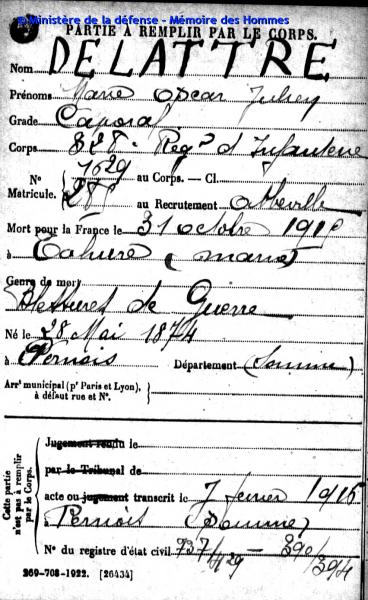 © Ministère de la défense - Mémoire des Hommes
PARTIE À REMPLIR PAR LE CORPS.
Nom DELATTRE
Prénoms Marie Oscar
Grade Caporal
Corps 328e Regt d'Infanterie
N° 1629 au Corps. — Cl.
Matricule. au Recrutement Abbeville
Mort pour la France le 31 octobre 1915
à Tahure (marne)
Genre de mort
Blessures de Guerre
Né le 28 Mai 1874
à Pernois Département (Somme)
Arr¹ municipal (p¹ Paris et Lyon),
à défaut rue et N°.
Cette partie n'est pas à remplir par le Corps.
Jugement rendu le
par le Tribunal de
acte ou jugement transcrit le 7 fevrier 1916
à Pernois (Somme)
N° du registre d'état civil 737/429 — 390/394
269-708-1922. [26434]